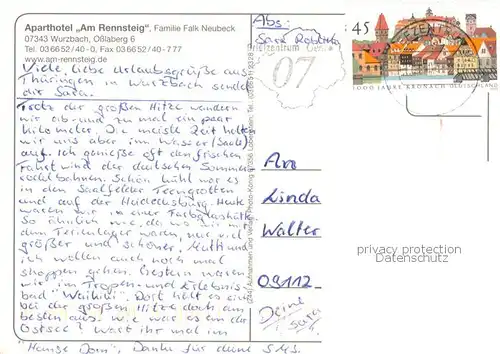 Aparthotel „Am Rennsteig", Familie Falk Neubeck
07343 Wurzbach, Oßlaberg 6
Tel. 03 66 52 / 40 - 0, Fax 03 66 52 / 40 - 7 77
www.am-rennsteig.de
Viele, liebe Urlaubsgrüße aus
Thüringen in Wurzbach sendet
dir Sara.
Trotz der großen Hitze wandern
wir ab und zu mal ein paar
Kilometer. Die meiste Zeit halten
wir uns aber im Wasser (Saale)
auf. Ich genieße oft den frischen
Fahrtwind der deutschen Sommer-
rodelbahnen. Schön kühl war es
in den Saalfelder Feengrotten
und auf der Heidecksburg. Heute
waren wir in einer Farbglashütte.
So ähnlich wie die, wo wir mit
dem Ferienlager waren, nur viel
größer und schöner. Mutti und
ich wollen auch noch mal
shoppen gehen. Gestern waren
wir im Tropen- und Erlebnis-
bad "Waikiki". Dort hält es sich
bei der großen Hitze doch am
besten aus. Wie war es an der
Ostsee? Wart ihr mal im
"Hanse Dom", Danke für deine SMS.
Abs:
Sara
Briefzentrum
07
45
1000 JAHRE KRONACH DEUTSCHLAND
An
Linda
Walter
09112
Deine
Sara
privacy protection
Datenschutz